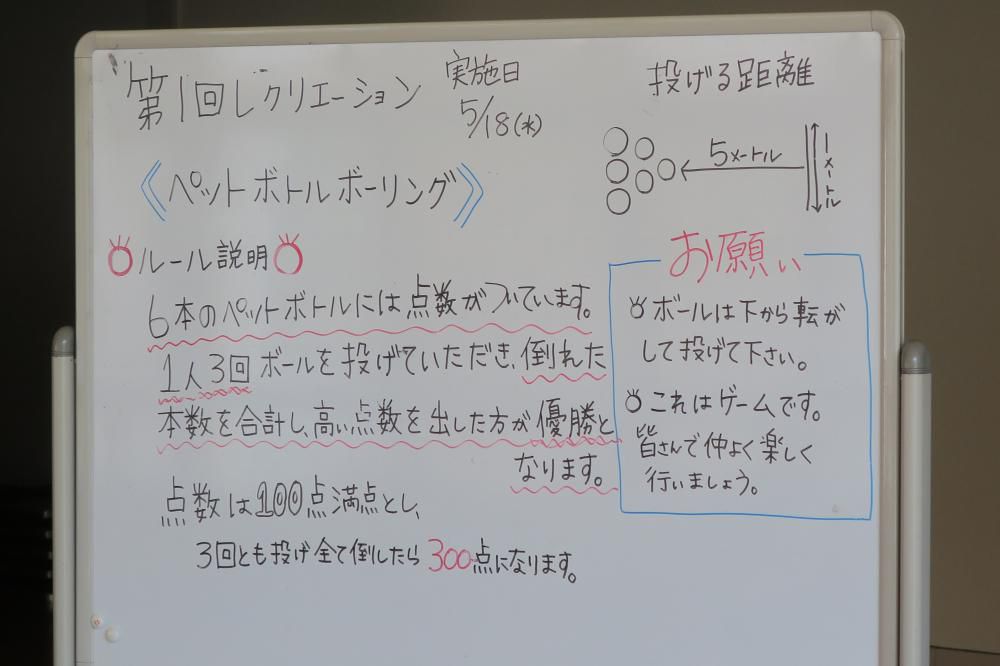 第1回レクリエーション
実施日
5/18(水)
《ペットボトルボーリング》
ルール説明
6本のペットボトルには点数がついています。
1人3回ボールを投げていただき、倒れた
本数を合計し、高い点数を出した方が優勝と
なります。
点数は100点満点とし、
3回とも投げ全て倒したら300点になります。
投げる距離
5メートル
1メートル
お願い
ボールは下から転が
して投げて下さい。
これはゲームです。
皆さんで仲よく楽しく
行いましょう。